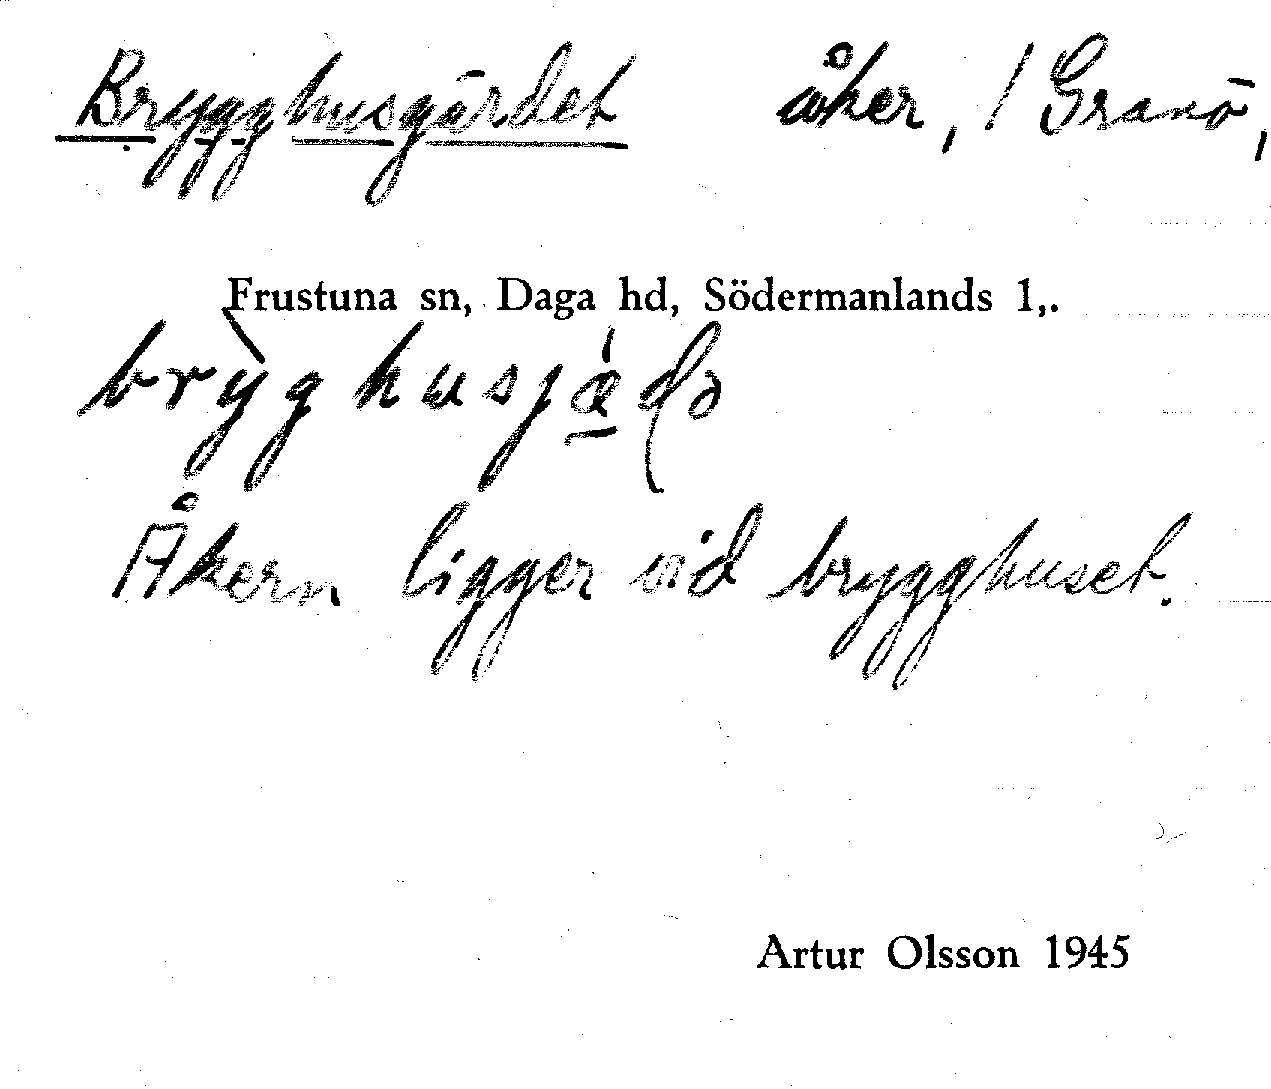 Brygghusgärdet åker, / Granö,
Frustuna sn, Daga hd, Södermanlands l,.
brỳghusjǽ̱ḍə
Åkern ligger vid brygghuset.
Artur Olsson 1945